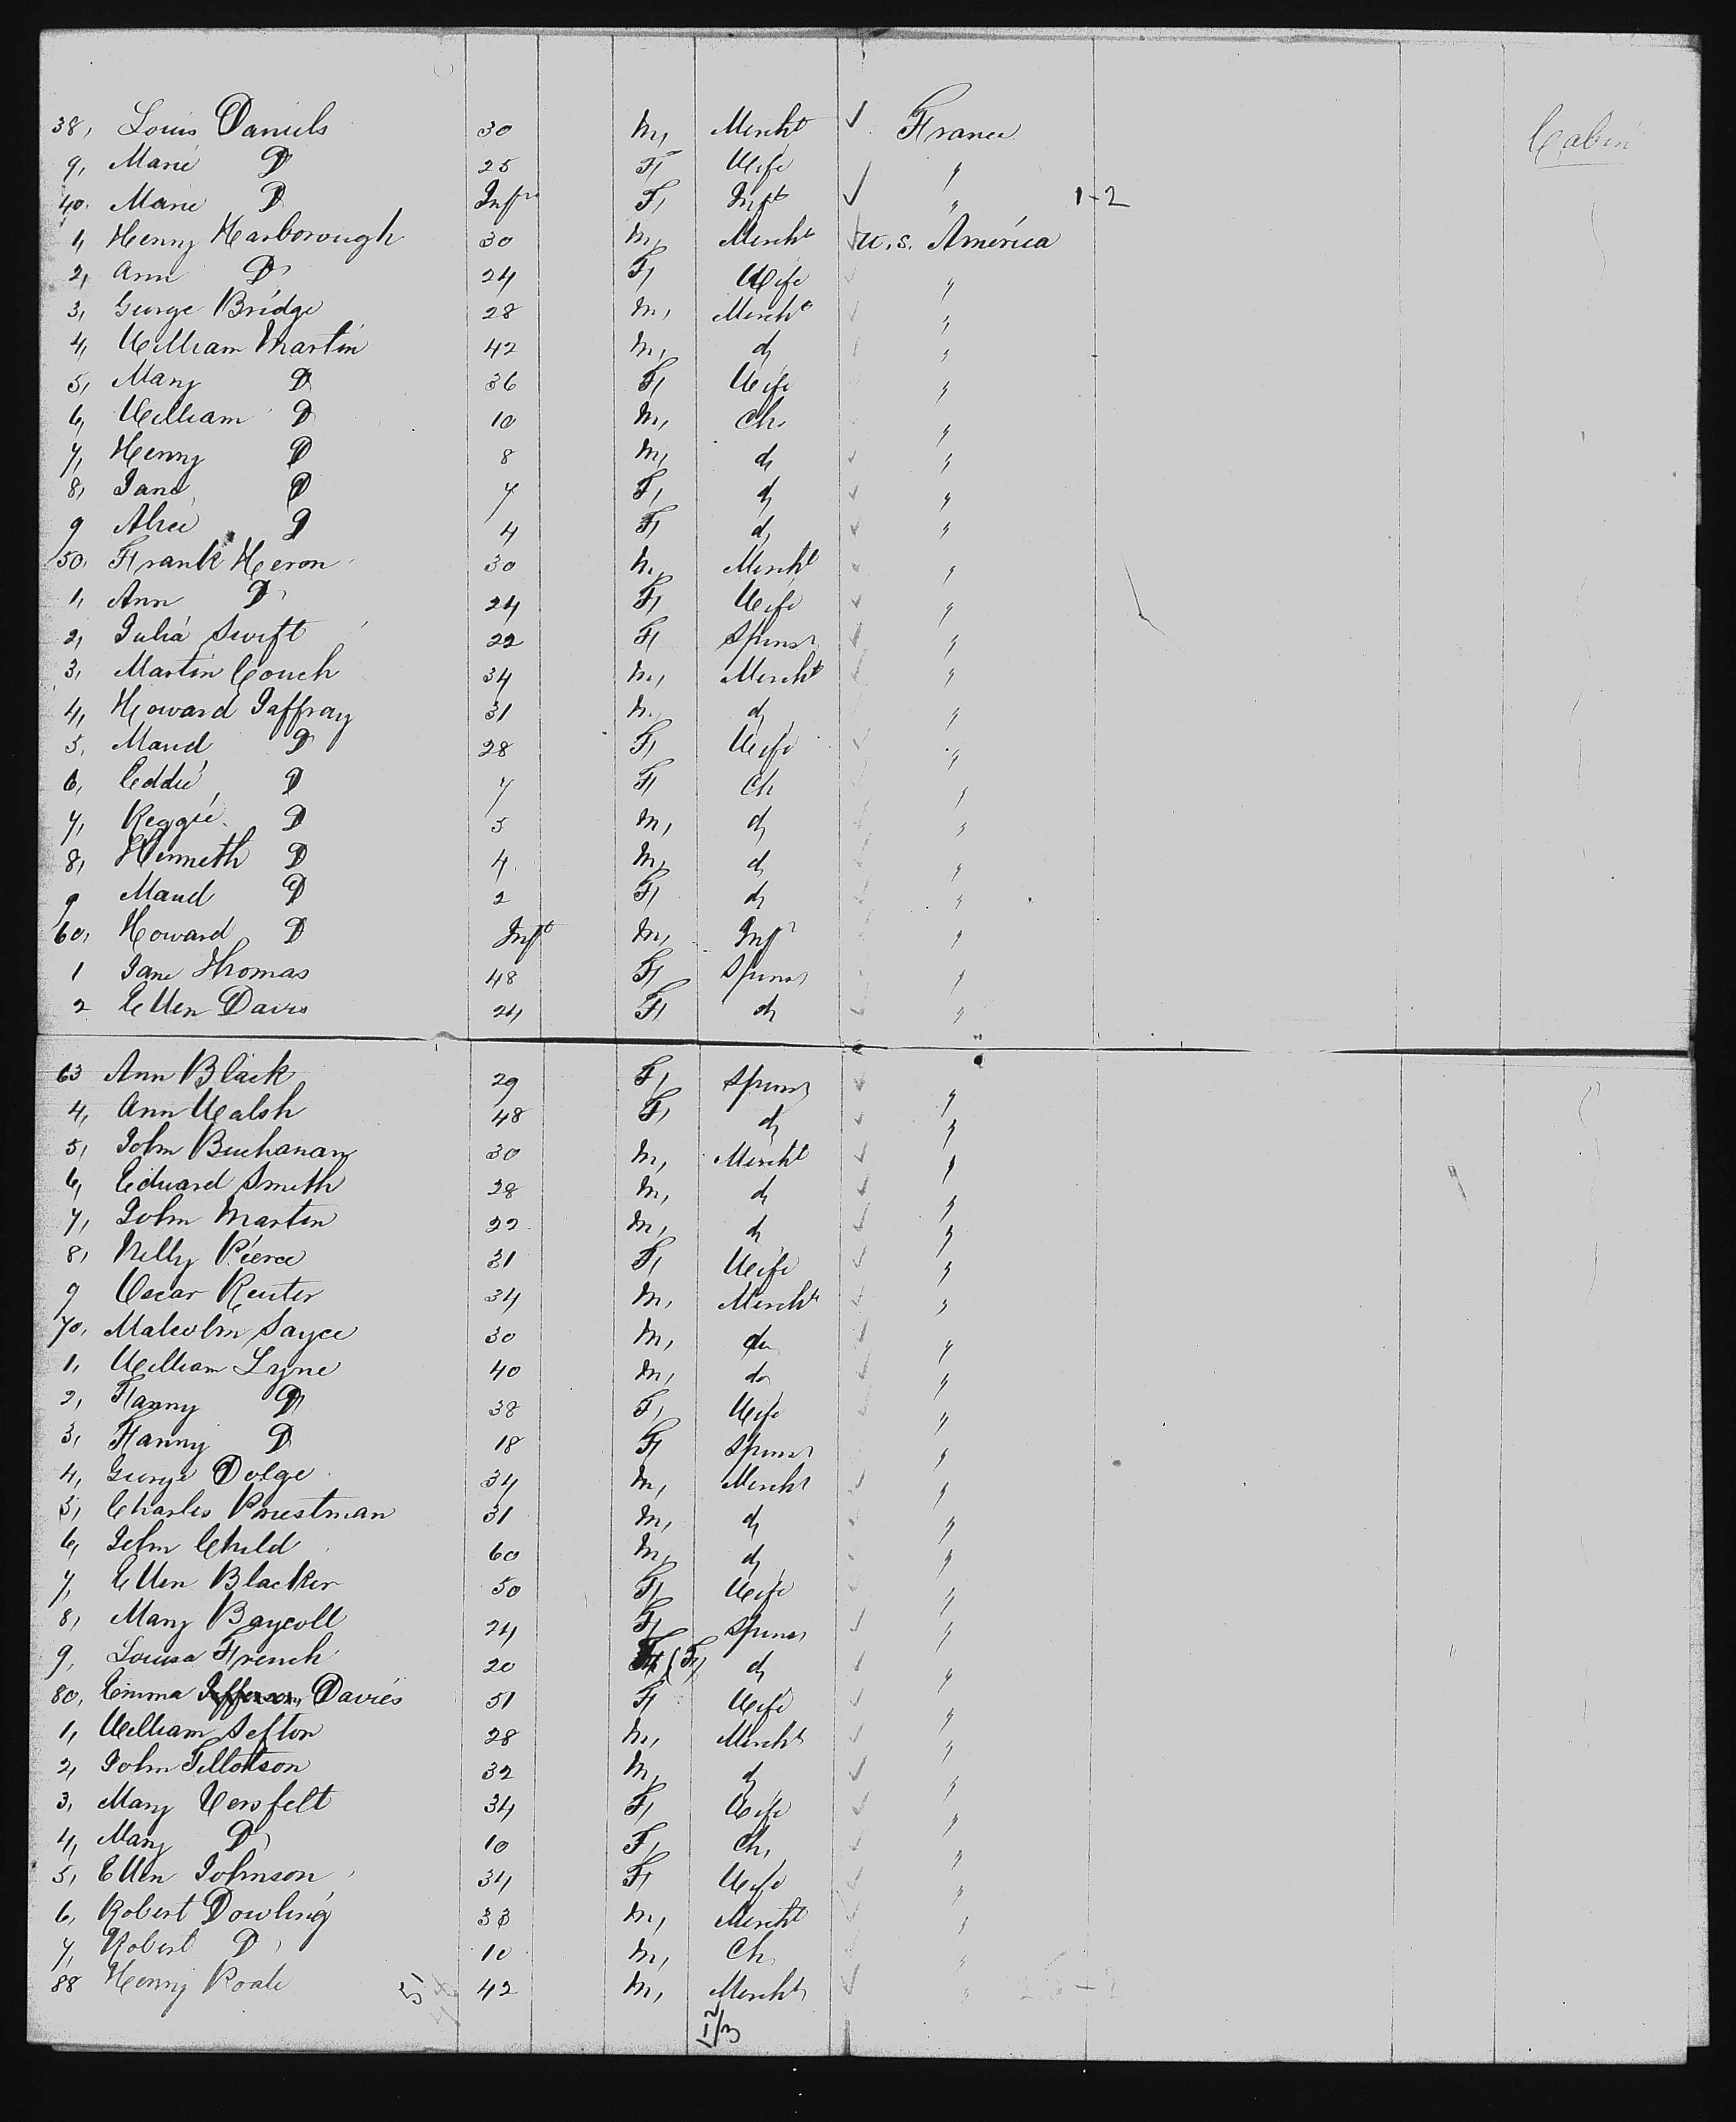 38, Louis Daniels 30 M, Mercht ✓ France Cabin
9, Marie D 25 F, Wife "
40. Marie D Inft F, Inft ✓ " 1-2
1, Henry Harborough 30 M, Mercht ✓ U.S. America
2, Ann D 24 F, Wife ✓ "
3, George Bridge 28 M, Mercht ✓ "
4, William Martin 42 M, d "
5, Mary D 36 F, Wife "
6, William D 10 M, Ch. "
7, Henry D 8 M, d ✓ "
8, Jane D 7 F, d ✓ "
9 Alice D 4 F, d, ✓ "
50. Frank Heron 30 M, Mercht ✓ "
1, Ann D 24 F, Wife ✓ "
2, Julia Swift 22 F, Spinsr ✓ "
3, Martin Couch 34 M, Mercht ✓ "
4, Howard Jaffray 31 M, d "
5. Maud D 28 F, Wife ✓ "
6, Eddie D 7 F, Ch "
7, Reggie D 5 M, d "
8, Kenneth D 4 M, d "
9 Maud D 2 F, d "
60, Howard D Inft M, Inft "
1 Jane Thomas 48 F, Spinsr "
2 Ellen Davis 24 F, d ✓ "
63 Ann Black 29 F, Spinsr ✓ "
4, Ann Walsh 48 F, d ✓ "
5, John Buchanan 30 M, Mercht ✓ "
6, Edward Smith 28 M, d ✓ "
7, John Martin 22 M, d ✓ "
8, Nelly Pierce 31 F, Wife ✓ "
9 Oscar Reuter 34 M, Mercht ✓ "
70, Malcolm Sayce 30 M, do ✓ "
1, William Lyne 40 M, do ✓ "
2, Fanny D 38 F, Wife "
3, Fanny D 18 F, Spinsr "
4, George Dolge 34 M, Mercht ✓ "
5, Charles Priestman 31 M, d "
6, John Child 60 M, d "
7, Ellen Blacker 50 F, Wife "
8, Mary Baycoll 24 F, Spinsr ✓ "
9, Louisa French 20 (F) d ✓ "
80, Emma Jefferson, Davies 51 F, Wife ✓ "
1, William Sefton 28 M, Mercht ✓ "
2, John Tillotson 32 M, d ✓ "
3, Mary Versfelt 34 F, Wife ✓ "
4, Mary D 10 F, Ch, ✓ "
5, Ellen Johnson 34 F, Wife "
6, Robert Dowling 33 M, Mercht "
7, Robert D 10 M, Ch. "
88 Henry Roate 42 M, Mercht ✓ "
51